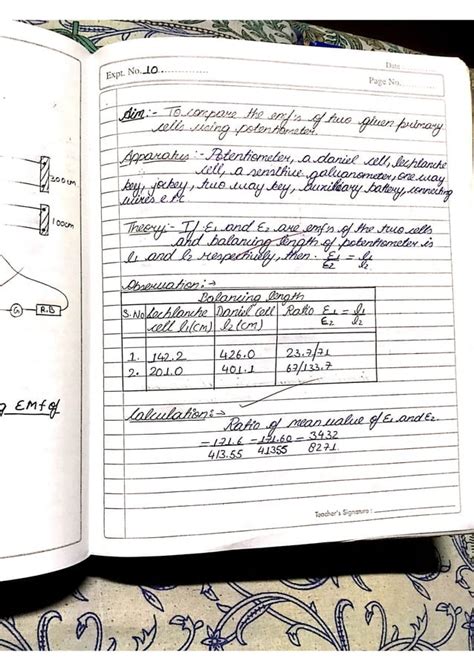 300cm
100cm
G R.B
g EMf of
Expt. No. 10
Date
Page No.
Aim:- To compare the emf's of two given primary
cells using potentiometer.
Apparatus:- Potentiometer, a daniel cell, lechlanche
cell, a sensitive galvanometer, one way
key, jockey, two way key, auxiliary battery, connecting
wires e.t.c
Theory:- If E1 and E2 are emf's of the two cells
and balancing length of potentiometer is
l1 and l2 respectively, then. E1/E2 = l1/l2
Observation:→
Balancing length
S.No Lechlanche cell l1(cm) Daniel cell l2(cm) Ratio E1/E2 = l1/l2
1. 142.2 426.0 23.7/71
2. 201.0 401.1 67/133.7
Calculation:→
Ratio of mean value of E1 and E2.
= 171.6/413.55 = 171.60/41355 = 3432/8271
Teacher's Signature: